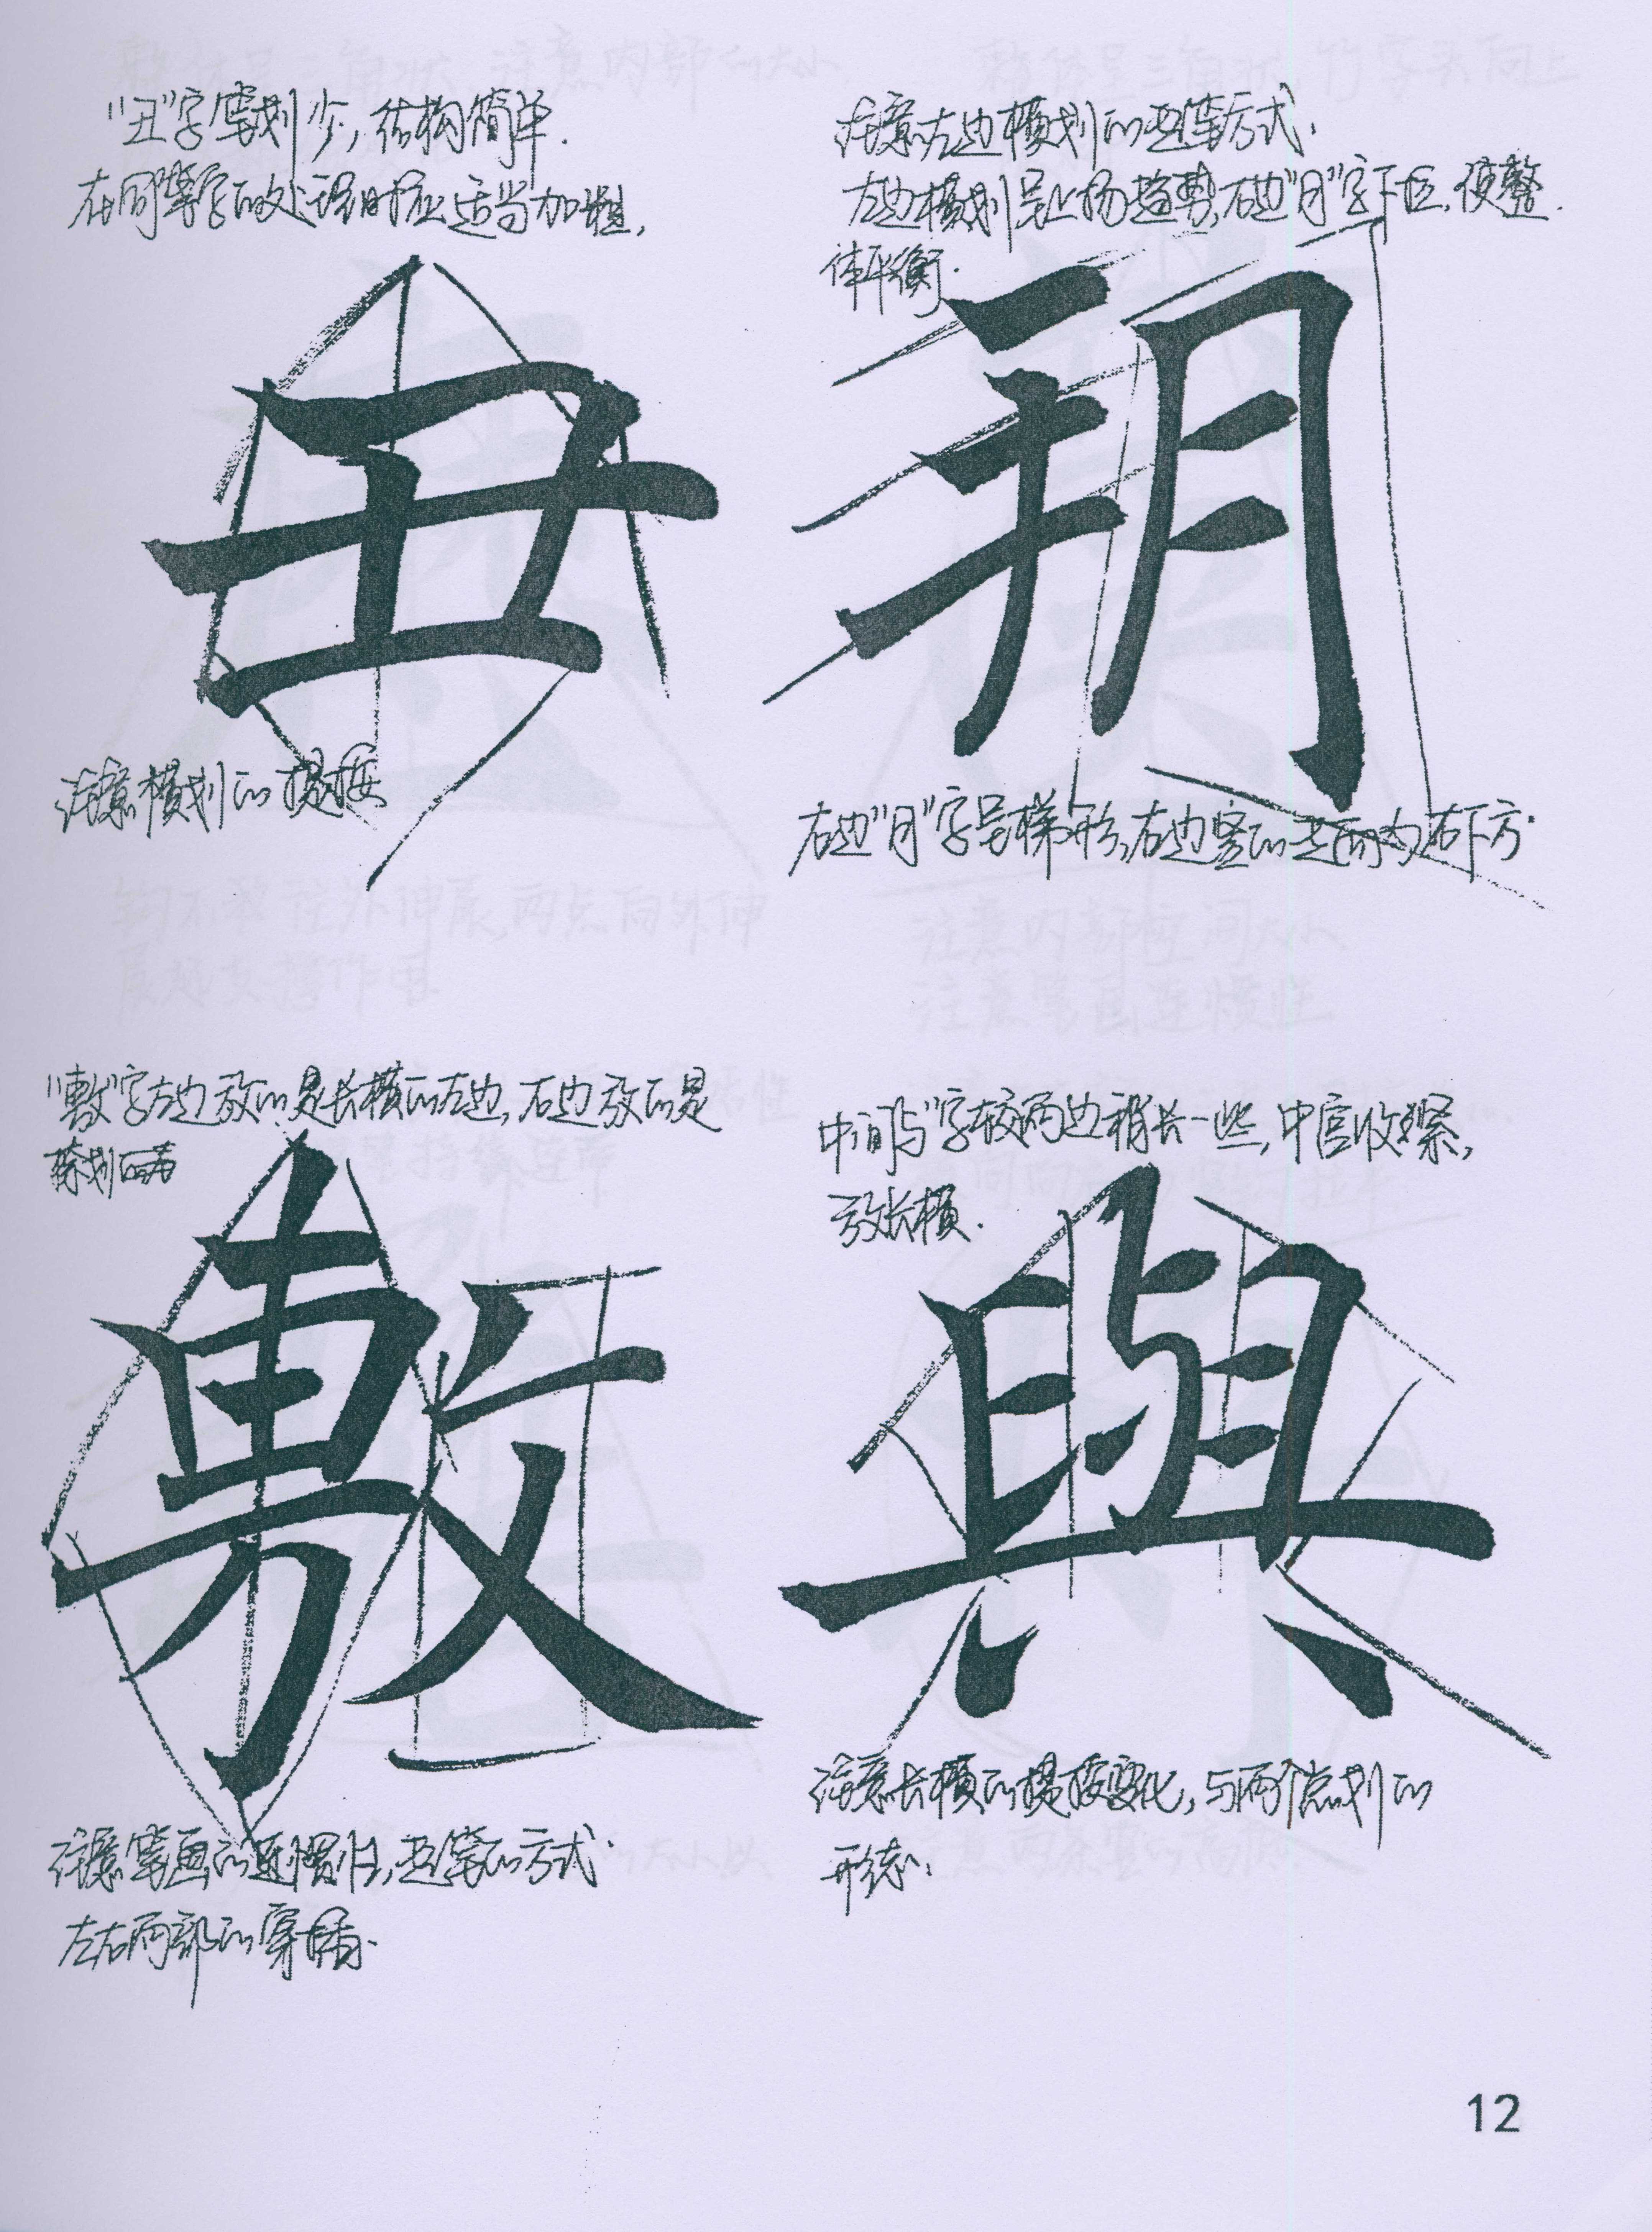 "丑"字笔划少,结构简单.
在同等字的处理时应适当加粗,
丑
注意横划的提按
注意左边横划的运笔方式.
左边横划呈上扬趋势,右边"月"字下压,使整
体平衡.
朔
右边"月"字呈梯形,右边竖的走向为右下方.
"敷"字左边放的是长横的左边,右边放的是
捺划
敷
注意笔画的连惯性,运笔的方式.
左右两部的穿插.
中间"与"字较两边稍长一些,中宫收紧,
放长横.
與
注意长横的提按变化,与两个点划的
形态.
12